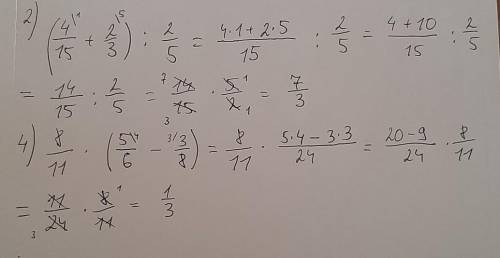 2) (4\1/15 + 2\5/3) : 2/5 = (4·1+2·5)/15 : 2/5 = (4+10)/15 : 2/5
= 14/15 : 2/5 = 7 14/15 3 · 5 1/2 1 = 7/3
4) 8/11 · (5\4/6 − 3/3/8) = 8/11 · (5·4−3·3)/24 = (20−9)/24 · 8/11
= 11/24 3 · 8 1/11 = 1/3